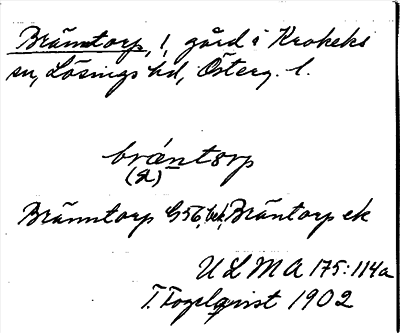 Bränntorp, 1, gård i Krokeks
sn, Lösings hd, Österg. l.
bräntorp
(st)
Bränntorp G56, beb, Bräntorp ek
ULMA 175:114a
T. Fogelqvist 1902